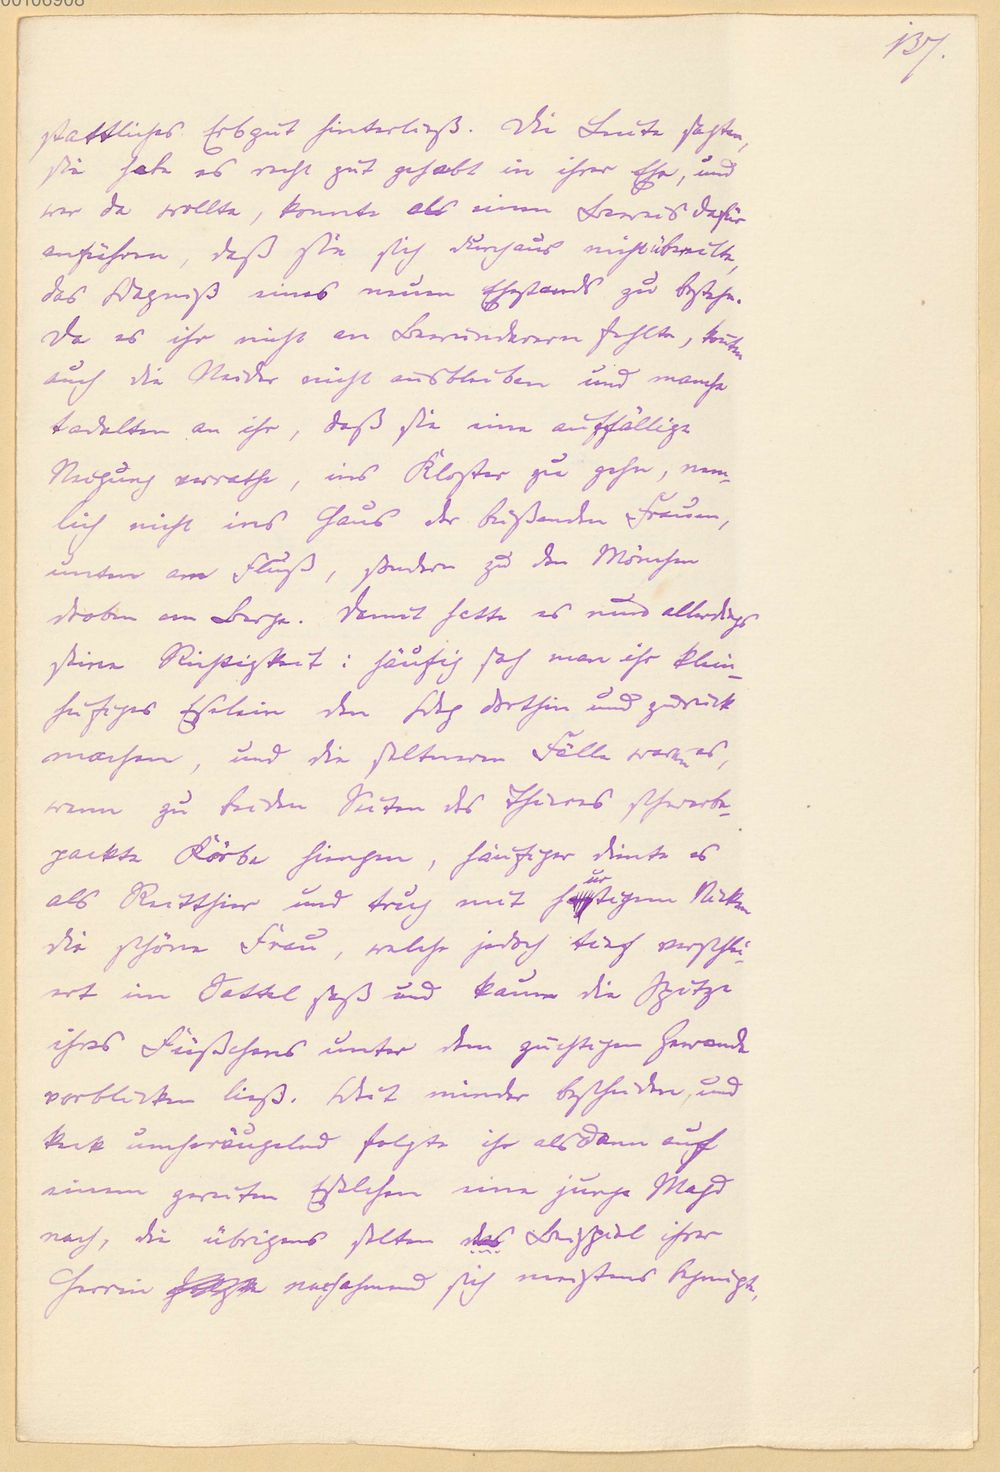 00106908
137.
stattliches Erbgut hinterließ. Die Leute sagten,
sie habe es recht gut gehabt in ihrer Ehe, und
wer da wollte, konnte als einen Beweis dafür
anführen, daß sie sich durchaus nicht übereilte,
das Wagniß eines neuen Ehestands zu bestehn.
Da es ihr nicht an Bewunderern fehlte, konnten
auch die Neider nicht ausbleiben und manche
tadelten an ihr, daß sie eine auffällige
Neigung verrathe, ins Kloster zu gehn, nem-
lich nicht ins Haus der büßenden Frauen,
unten am Fluß, sondern zu den Mönchen
droben am Berge. Damit hatte es nun allerdings
seine Richtigkeit: häufig sah man ihr klein-
hufiges Eselein den Weg dorthin und zurück
machen, und die seltneren Fälle waren es,
wenn zu beiden Seiten des Thieres schwerbe-
packte Körbe hiengen, häufiger diente es
als Reitthier und trug mit hurtigem Nicken
die schöne Frau, welche jedoch tief verschlei-
ert im Sattel saß und kaum die Spitze
ihres Füßchens unter dem züchtigen Gewande
vorblicken ließ. Weit minder bescheiden, und
keck umheräugelnd folgte ihr alsdann auf
einem zweiten Eselchen eine junge Magd
nach, die übrigens selten das Beispiel ihrer
Herrin nachahmend sich meistens begnügte,